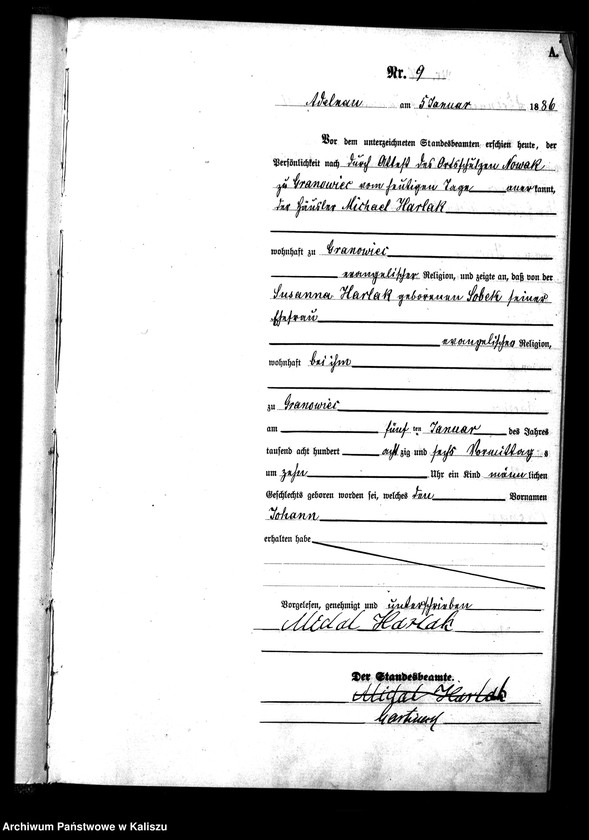 A.
Nr. 9
Adelnau am 5 Januar 1886
Vor dem unterzeichneten Standesbeamten erschien heute, der
Persönlichkeit nach durch Attest des Ortsschulzen Nowak
zu Granowiec vom heutigen Tage anerkannt,
der Häusler Michael Harlak
wohnhaft zu Granowiec
evangelischer Religion, und zeigte an, daß von der
Susanna Harlak geborenen Sobek seiner
Ehefrau
evangelischer Religion,
wohnhaft bei ihm
zu Granowiec
am fünf ten Januar des Jahres
tausend acht hundert acht zig und sechs Vormittag s
um zehn Uhr ein Kind männ lichen
Geschlechts geboren worden sei, welches den Vornamen
Johann
erhalten habe
Vorgelesen, genehmigt und unterschrieben
Michal Harlak
Der Standesbeamte.
Michal Harlak
Archiwum Państwowe w Kaliszu